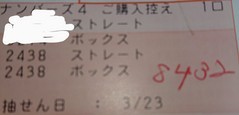 ナンバーズ4 ご購入控え 1口
ストレート
ボックス
2438 ストレート
2438 ボックス
8432
抽せん日 : 3/23